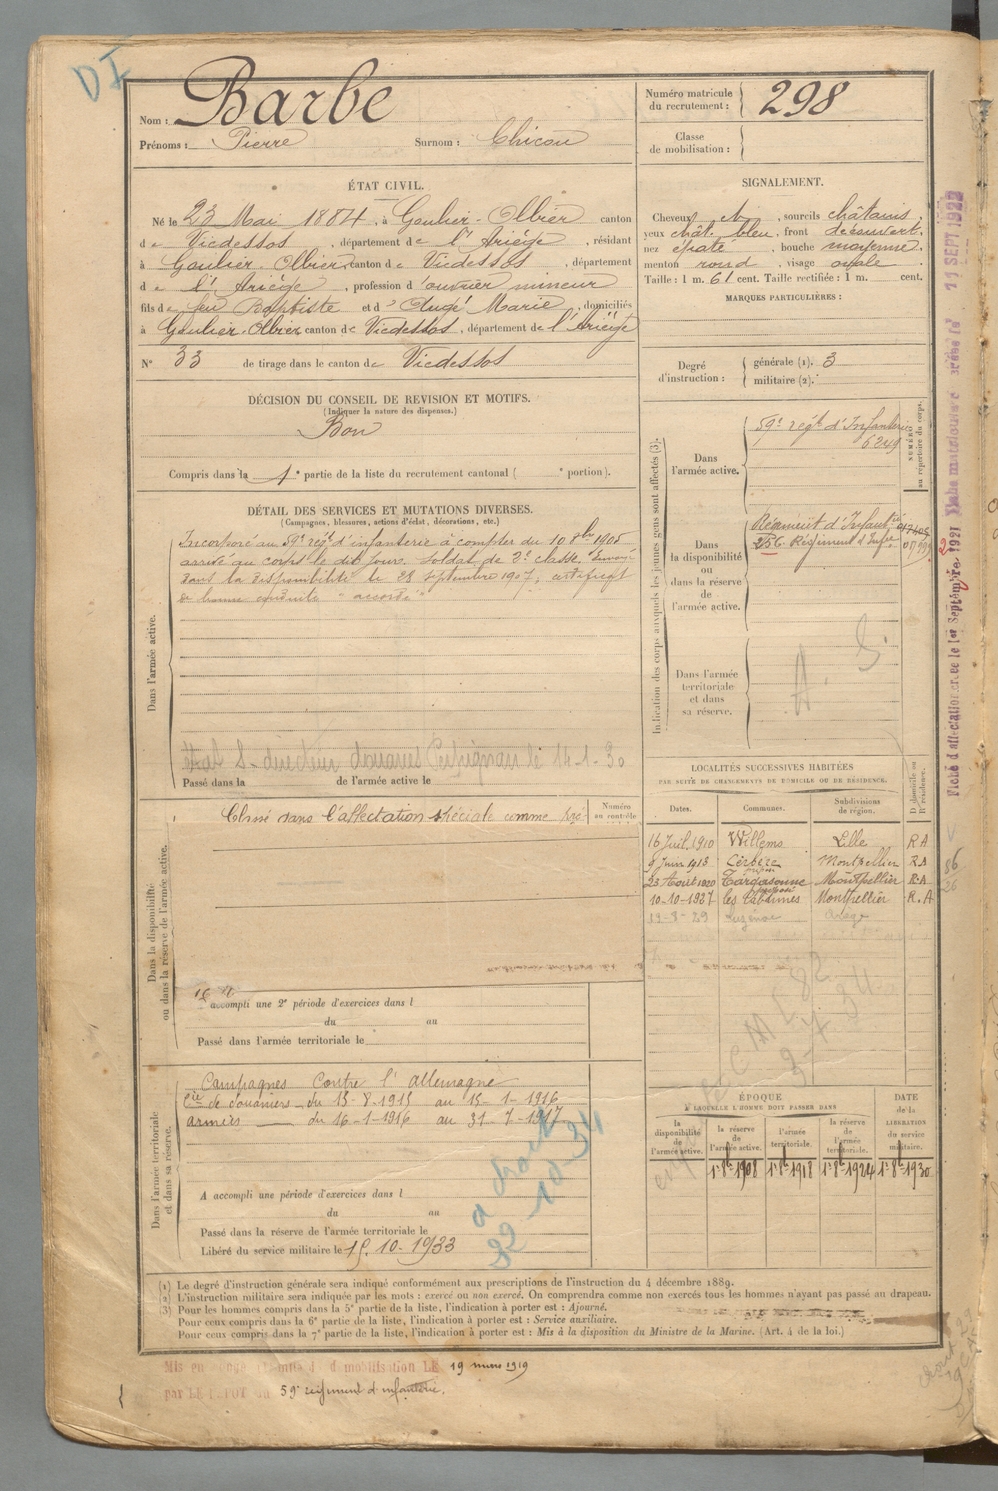 D I
Nom : Barbe
Prénoms : Pierre Surnom : Chicou
Numéro matricule du recrutement : 298
Classe de mobilisation :
ÉTAT CIVIL.
Né le 23 Mai 1884, à Goulier-Olbier canton
de Vicdessos, département de l'Ariège, résidant
à Goulier-Olbier canton de Vicdessos, département
de l'Ariège, profession d'ouvrier mineur
fils de feu Baptiste et d'Augé Marie, domiciliés
à Goulier-Olbier canton de Vicdessos, département de l'Ariège
N° 33 de tirage dans le canton de Vicdessos
SIGNALEMENT.
Cheveux et, sourcils châtains.
yeux chât. bleu, front découvert.
nez épaté, bouche moyenne.
menton rond, visage ovale
Taille : 1 m. 61 cent. Taille rectifiée : 1 m. cent.
MARQUES PARTICULIÈRES :
Degré d'instruction : générale (1). 3
militaire (2).
DÉCISION DU CONSEIL DE REVISION ET MOTIFS.
(Indiquer la nature des dispenses.)
Bon
Compris dans la 1e partie de la liste du recrutement cantonal ( e portion).
DÉTAIL DES SERVICES ET MUTATIONS DIVERSES.
(Campagnes, blessures, actions d'éclat, décorations, etc.)
Dans l'armée active.
Incorporé au 59e régt d'infanterie à compter du 10 8bre 1905
arrivé au corps le dit jour. Soldat de 2e classe. Envoyé
dans la disponibilité le 28 septembre 1907, certificat
de bonne conduite "accordé"
S-directeur douanes Perpignan le 14-1-30
Passé dans la de l'armée active le
Indication des corps auxquels les jeunes gens sont affectés (3).
NUMÉRO au répertoire du corps.
Dans l'armée active.
59e régt d'Infanterie
6249
Dans la disponibilité ou dans la réserve de l'armée active.
Régiment d'Infantie
256 Régiment d'Infie
Dans l'armée territoriale et dans sa réserve.
Dans la disponibilité ou dans la réserve de l'armée active.
Classé dans l'affectation spéciale comme pré-
Numéro au contrôle
accompli une 2e période d'exercices dans l
du au
Passé dans l'armée territoriale le
LOCALITÉS SUCCESSIVES HABITÉES
PAR SUITE DE CHANGEMENTS DE DOMICILE OU DE RÉSIDENCE.
Dates. Communes. Subdivisions de région. D domicile ou R résidence.
16 Juil. 1910 Willems Lille R A
9 Juin 1913 Cerbère Montpellier R A
23 Août 1920 Targasonne Montpellier R A
10-10-1927 les Cabannes Montpellier R. A
19-8-29 Luzenac Ariège
Dans l'armée territoriale et dans sa réserve.
Campagnes Contre l'Allemagne
Cie de douaniers du 15-8-1915 au 15-1-1916
armées du 16-1-1916 au 31-7-1917
A accompli une période d'exercices dans l
du au
Passé dans la réserve de l'armée territoriale le
Libéré du service militaire le 15.10.1933
ÉPOQUE
À LAQUELLE L'HOMME DOIT PASSER DANS
la disponibilité de l'armée active.
la réserve de l'armée active.
l'armée territoriale.
la réserve de l'armée territoriale.
DATE de la LIBÉRATION du service militaire.
1er 8bre 1908 1er 8bre 1918 1er 8bre 1924 1er 8bre 1930
(1) Le degré d'instruction générale sera indiqué conformément aux prescriptions de l'instruction du 4 décembre 1889.
(2) L'instruction militaire sera indiquée par les mots : exercé ou non exercé. On comprendra comme non exercés tous les hommes n'ayant pas passé au drapeau.
(3) Pour les hommes compris dans la 5e partie de la liste, l'indication à porter est : Ajourné.
Pour ceux compris dans la 6e partie de la liste, l'indication à porter est : Service auxiliaire.
Pour ceux compris dans la 7e partie de la liste, l'indication à porter est : Mis à la disposition du Ministre de la Marine. (Art. 4 de la loi.)
Mis en congé de démobilisation LE 19 mars 1919
par LE DÉPOT du 59e régiment d'infanterie.
Fiche d'affectation créée le 1er Septembre 1921
Fiche matriculaire créée le 11 SEPT 1922